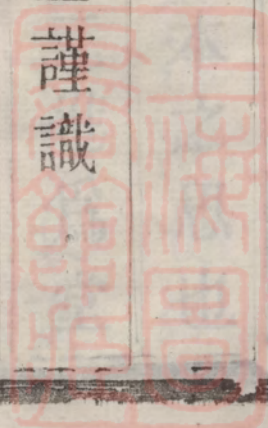 謹識
上海圖
書館藏